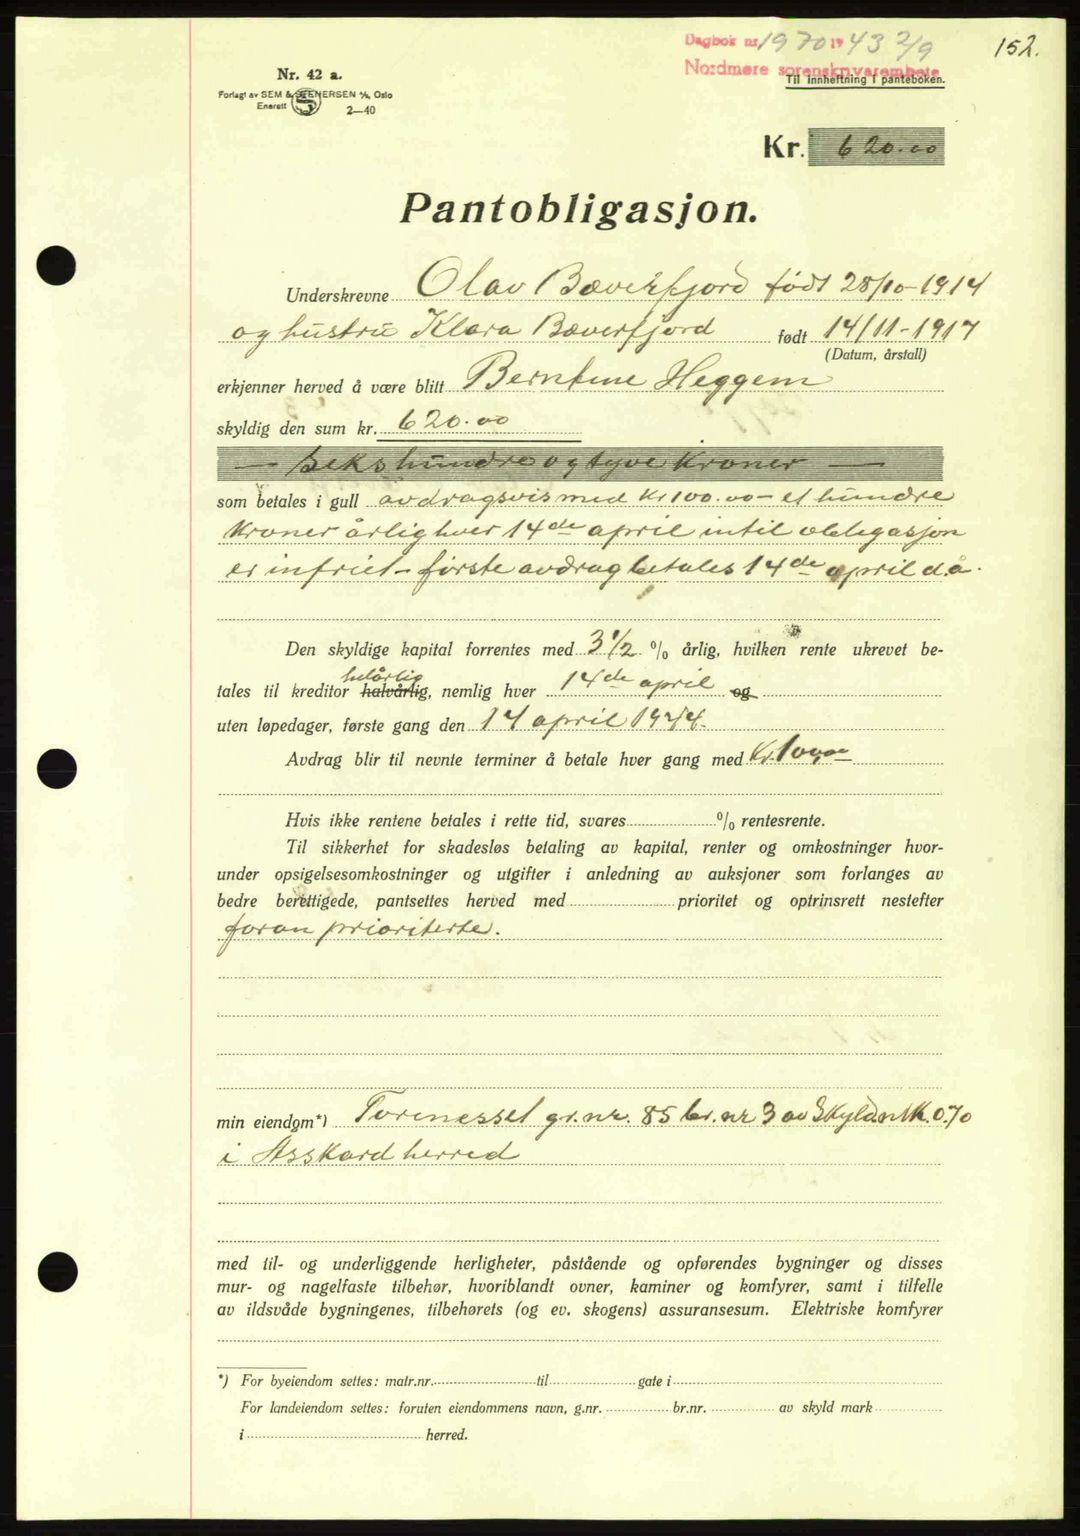 Dagbok nr. 1970 1943 2/9
152.
Nordmøre sorenskriverembete
Til innheftning i panteboken.
Nr. 42 a.
Forlagt av SEM & STENERSEN A/S, Oslo
Enerett
2—40
Kr. 620.00
Pantobligasjon.
Underskrevne Olav Bæverfjord født 28/10-1914
og hustru Klara Bæverfjord født 14/11-1917
(Datum, årstall)
erkjenner herved å være blitt Berntine Heggem
skyldig den sum kr. 620.00
— Sekshundre og tyve Kroner —
som betales i gull avdragsvis med Kr 100.00 - et hundre
Kroner årlig hver 14de april intil obligasjon
er infriet - første avdrag betales 14de april d.å.
Den skyldige kapital forrentes med 3 1/2 % årlig, hvilken rente ukrevet be-
helårlig
tales til kreditor halvårlig, nemlig hver 14de april og
uten løpedager, første gang den 14 april 1944.
Avdrag blir til nevnte terminer å betale hver gang med Kr. 100,00
Hvis ikke rentene betales i rette tid, svares % rentesrente.
Til sikkerhet for skadesløs betaling av kapital, renter og omkostninger hvor-
under opsigelsesomkostninger og utgifter i anledning av auksjoner som forlanges av
bedre berettigede, pantsettes herved med prioritet og optrinsrett nestefter
foran prioriterte.
min eiendom*) Torenesset gr.nr. 85 br.nr 3 av Skyldmk. 0.70
i Asskard herred
med til- og underliggende herligheter, påstående og opførendes bygninger og disses
mur- og nagelfaste tilbehør, hvoriblandt ovner, kaminer og komfyrer, samt i tilfelle
av ildsvåde bygningenes, tilbehørets (og ev. skogens) assuransesum. Elektriske komfyrer
*) For byeiendom settes: matr.nr. til gate i
For landeiendom settes: foruten eiendommens navn, g.nr. br.nr. av skyld mark
i herred.